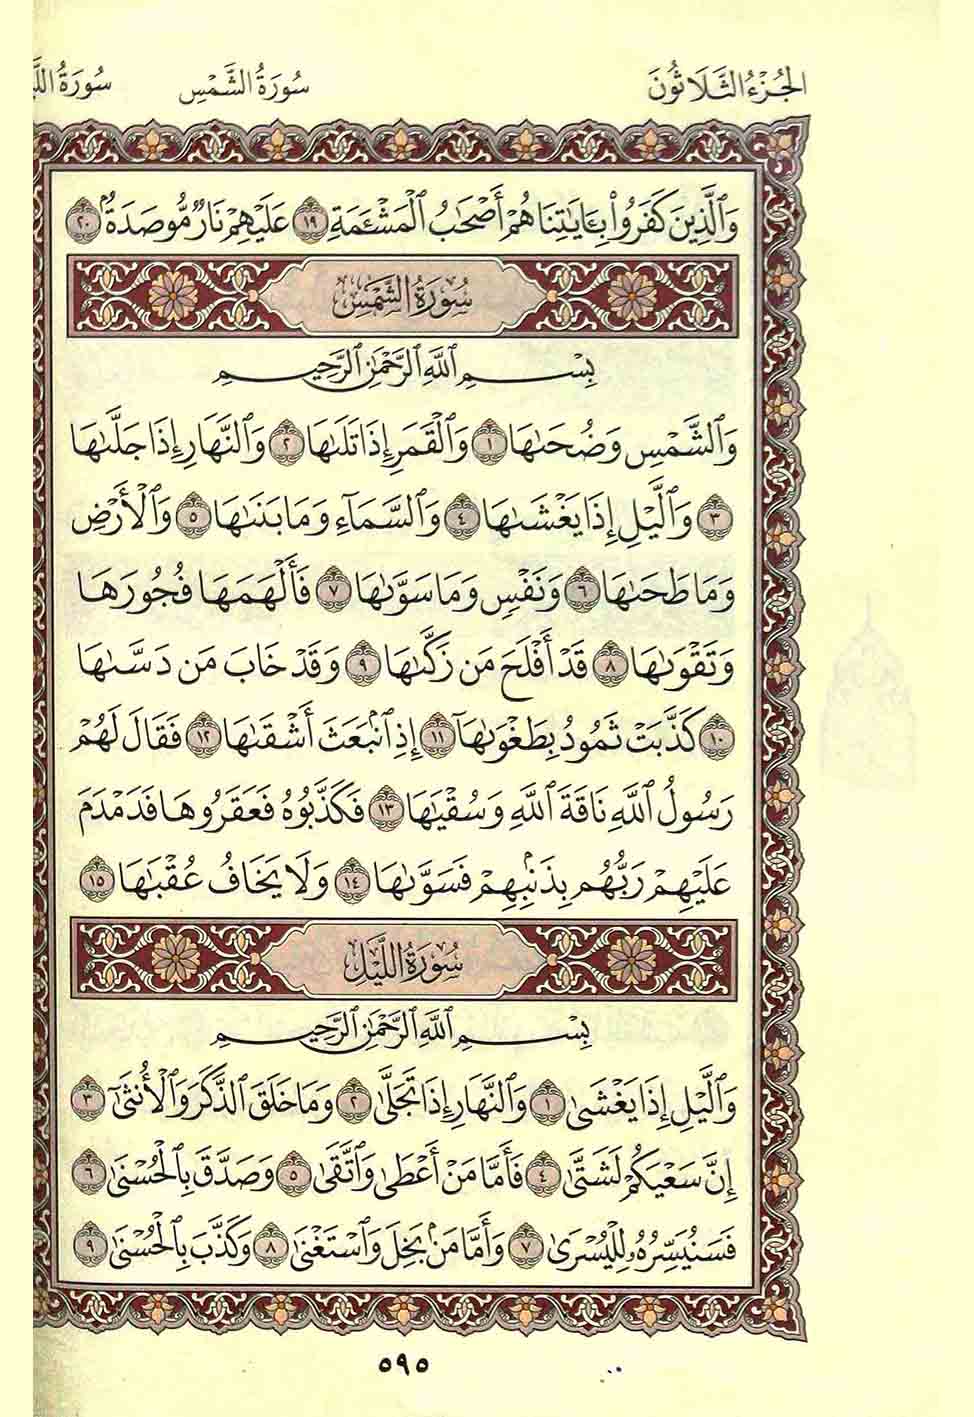 الجُزْءُ الثَّلَاثُونَ سُورَةُ الشَّمْسِ سُورَةُ
وَٱلَّذِينَ كَفَرُوا۟ بِـَٔايَـٰتِنَا هُمْ أَصْحَـٰبُ ٱلْمَشْـَٔمَةِ ١٩ عَلَيْهِمْ نَارٌ مُّؤْصَدَةٌۢ ٢٠
سُورَةُ الشَّمْسِ
بِسْمِ ٱللَّهِ ٱلرَّحْمَـٰنِ ٱلرَّحِيمِ
وَٱلشَّمْسِ وَضُحَىٰهَا ١ وَٱلْقَمَرِ إِذَا تَلَىٰهَا ٢ وَٱلنَّهَارِ إِذَا جَلَّىٰهَا
٣ وَٱلَّيْلِ إِذَا يَغْشَىٰهَا ٤ وَٱلسَّمَآءِ وَمَا بَنَىٰهَا ٥ وَٱلْأَرْضِ
وَمَا طَحَىٰهَا ٦ وَنَفْسٍ وَمَا سَوَّىٰهَا ٧ فَأَلْهَمَهَا فُجُورَهَا
وَتَقْوَىٰهَا ٨ قَدْ أَفْلَحَ مَن زَكَّىٰهَا ٩ وَقَدْ خَابَ مَن دَسَّىٰهَا
١٠ كَذَّبَتْ ثَمُودُ بِطَغْوَىٰهَآ ١١ إِذِ ٱنۢبَعَثَ أَشْقَىٰهَا ١٢ فَقَالَ لَهُمْ
رَسُولُ ٱللَّهِ نَاقَةَ ٱللَّهِ وَسُقْيَـٰهَا ١٣ فَكَذَّبُوهُ فَعَقَرُوهَا فَدَمْدَمَ
عَلَيْهِمْ رَبُّهُم بِذَنۢبِهِمْ فَسَوَّىٰهَا ١٤ وَلَا يَخَافُ عُقْبَـٰهَا ١٥
سُورَةُ اللَّيْلِ
بِسْمِ ٱللَّهِ ٱلرَّحْمَـٰنِ ٱلرَّحِيمِ
وَٱلَّيْلِ إِذَا يَغْشَىٰ ١ وَٱلنَّهَارِ إِذَا تَجَلَّىٰ ٢ وَمَا خَلَقَ ٱلذَّكَرَ وَٱلْأُنثَىٰٓ ٣
إِنَّ سَعْيَكُمْ لَشَتَّىٰ ٤ فَأَمَّا مَنْ أَعْطَىٰ وَٱتَّقَىٰ ٥ وَصَدَّقَ بِٱلْحُسْنَىٰ ٦
فَسَنُيَسِّرُهُۥ لِلْيُسْرَىٰ ٧ وَأَمَّا مَنۢ بَخِلَ وَٱسْتَغْنَىٰ ٨ وَكَذَّبَ بِٱلْحُسْنَىٰ ٩
٥٩٥